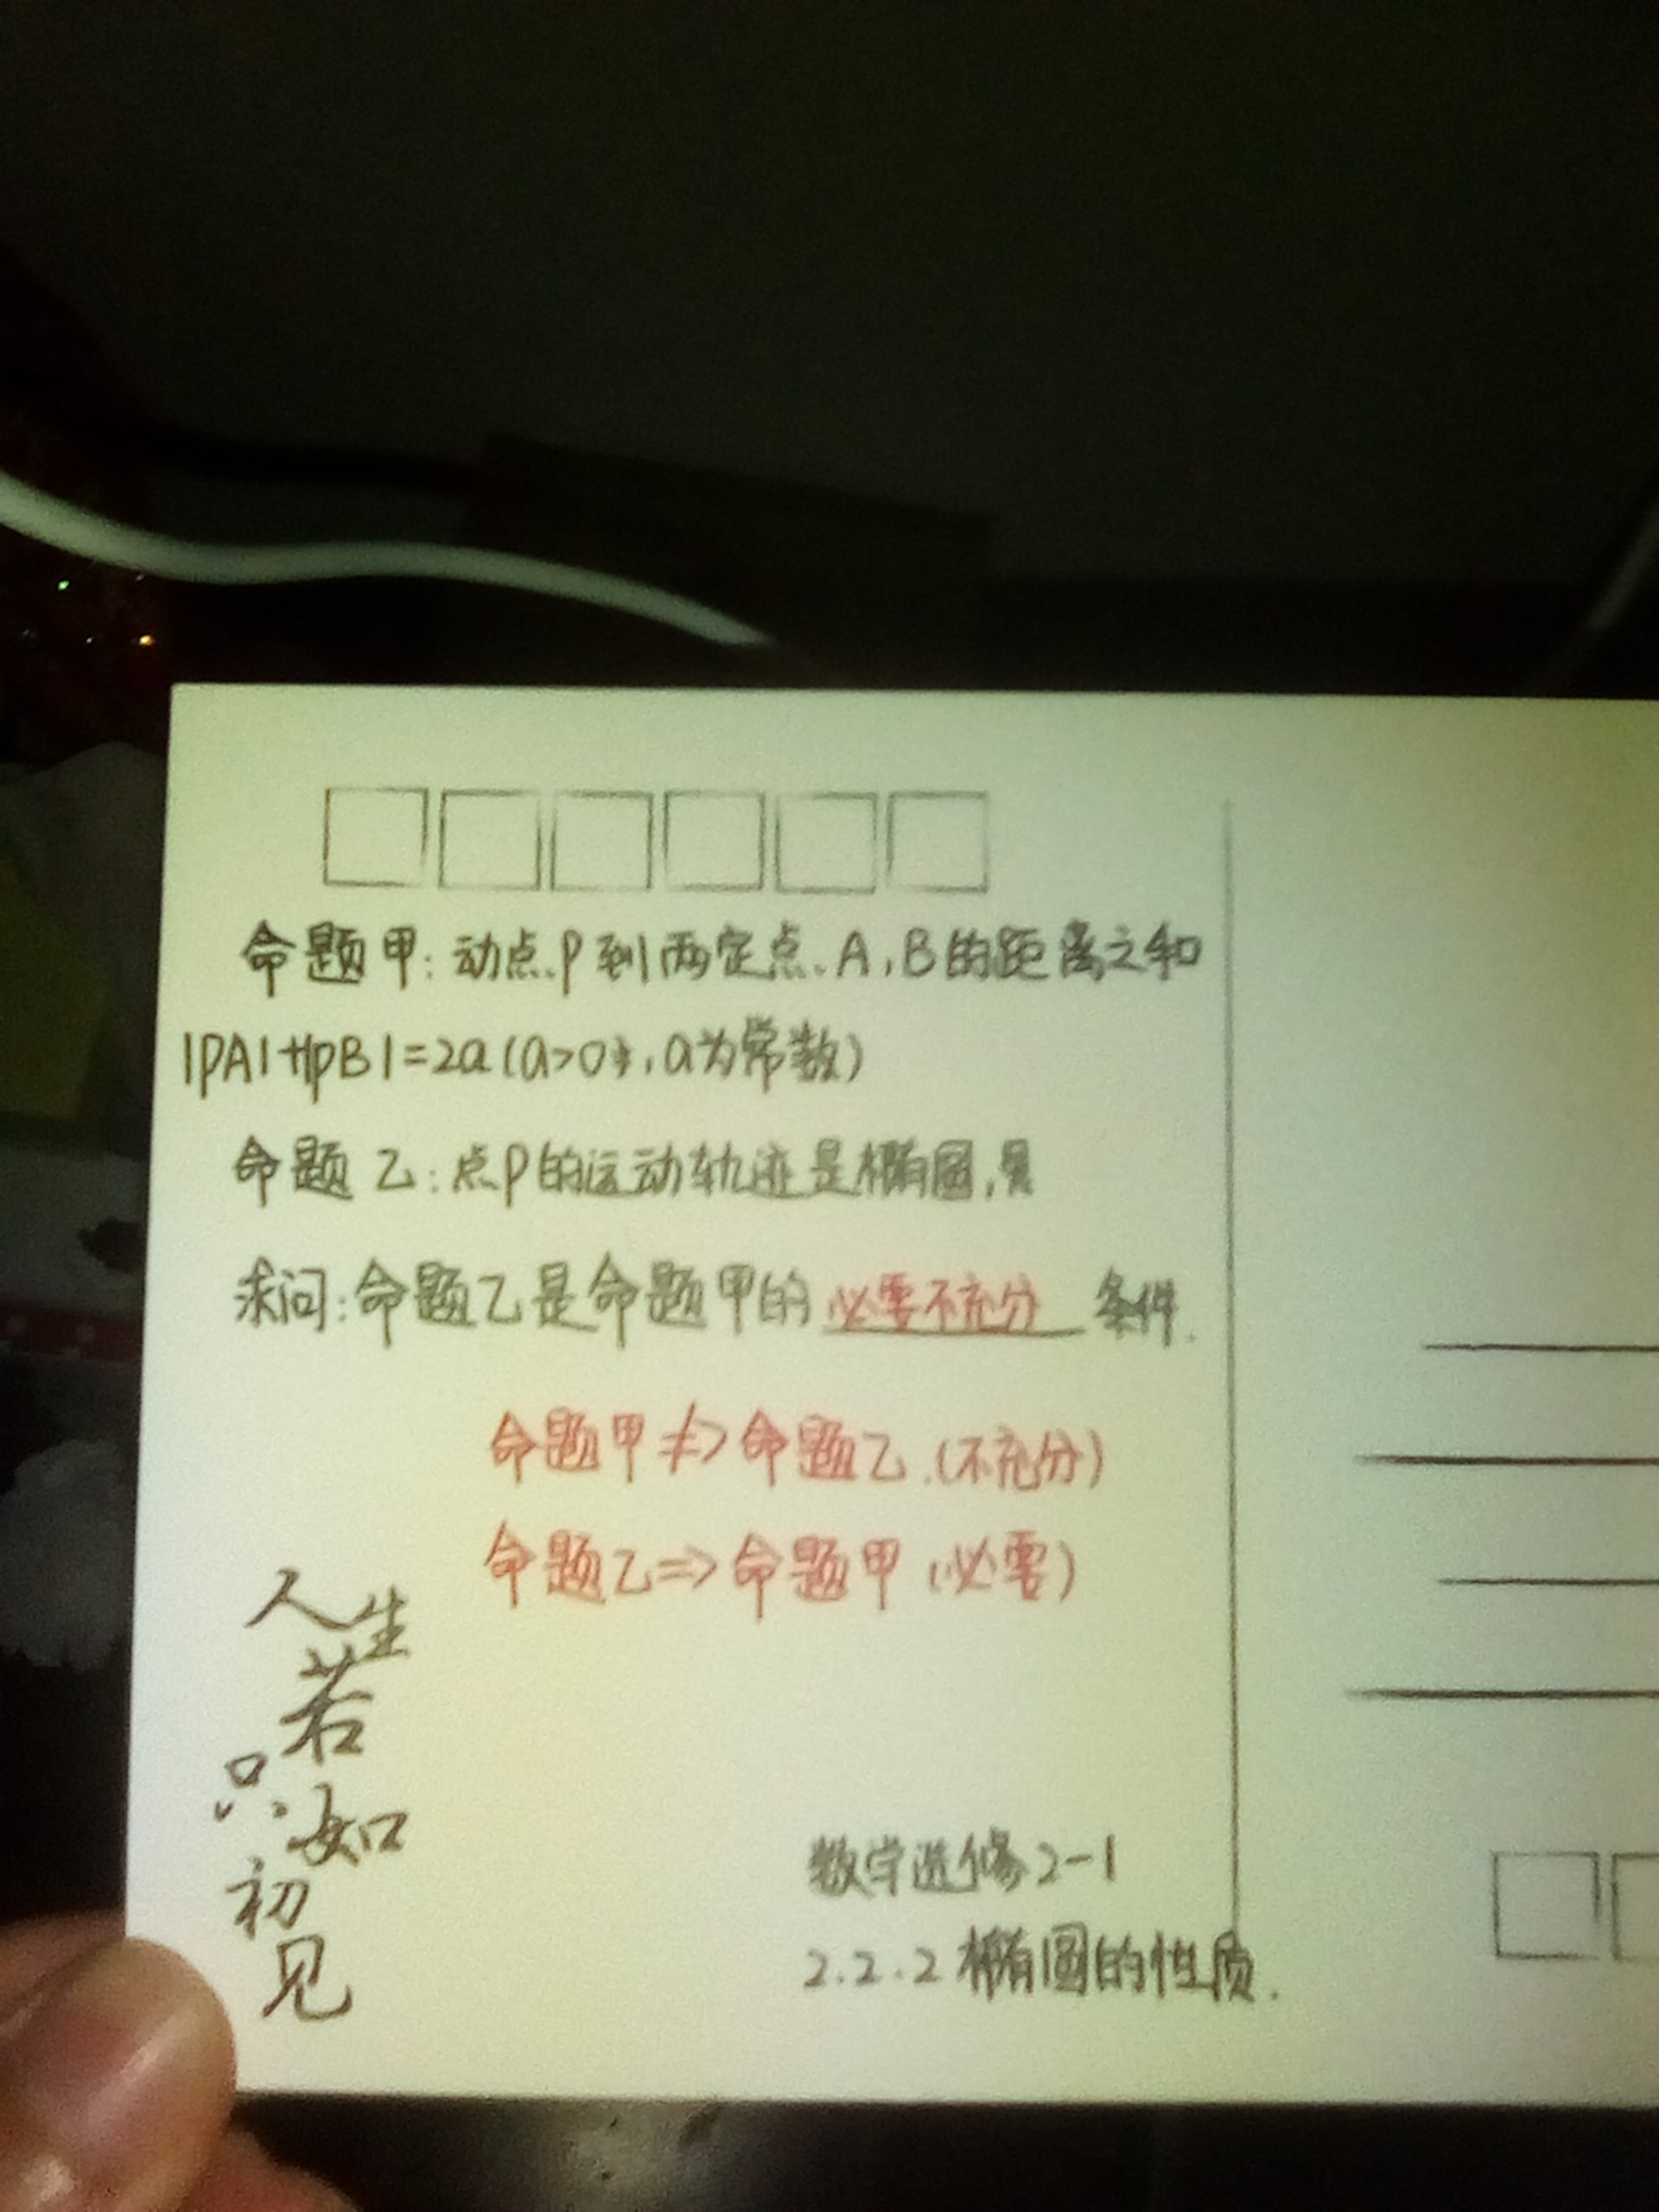 命题甲：动点P到两定点A，B的距离之和
|PA|+|PB|=2a(a>0，a为常数)
命题乙：点P的运动轨迹是椭圆，
求问：命题乙是命题甲的必要不充分条件．
命题甲≠>命题乙．(不充分)
命题乙=>命题甲(必要)
人生
若
只如
初
见
数学选修2-1
2.2.2椭圆的性质．